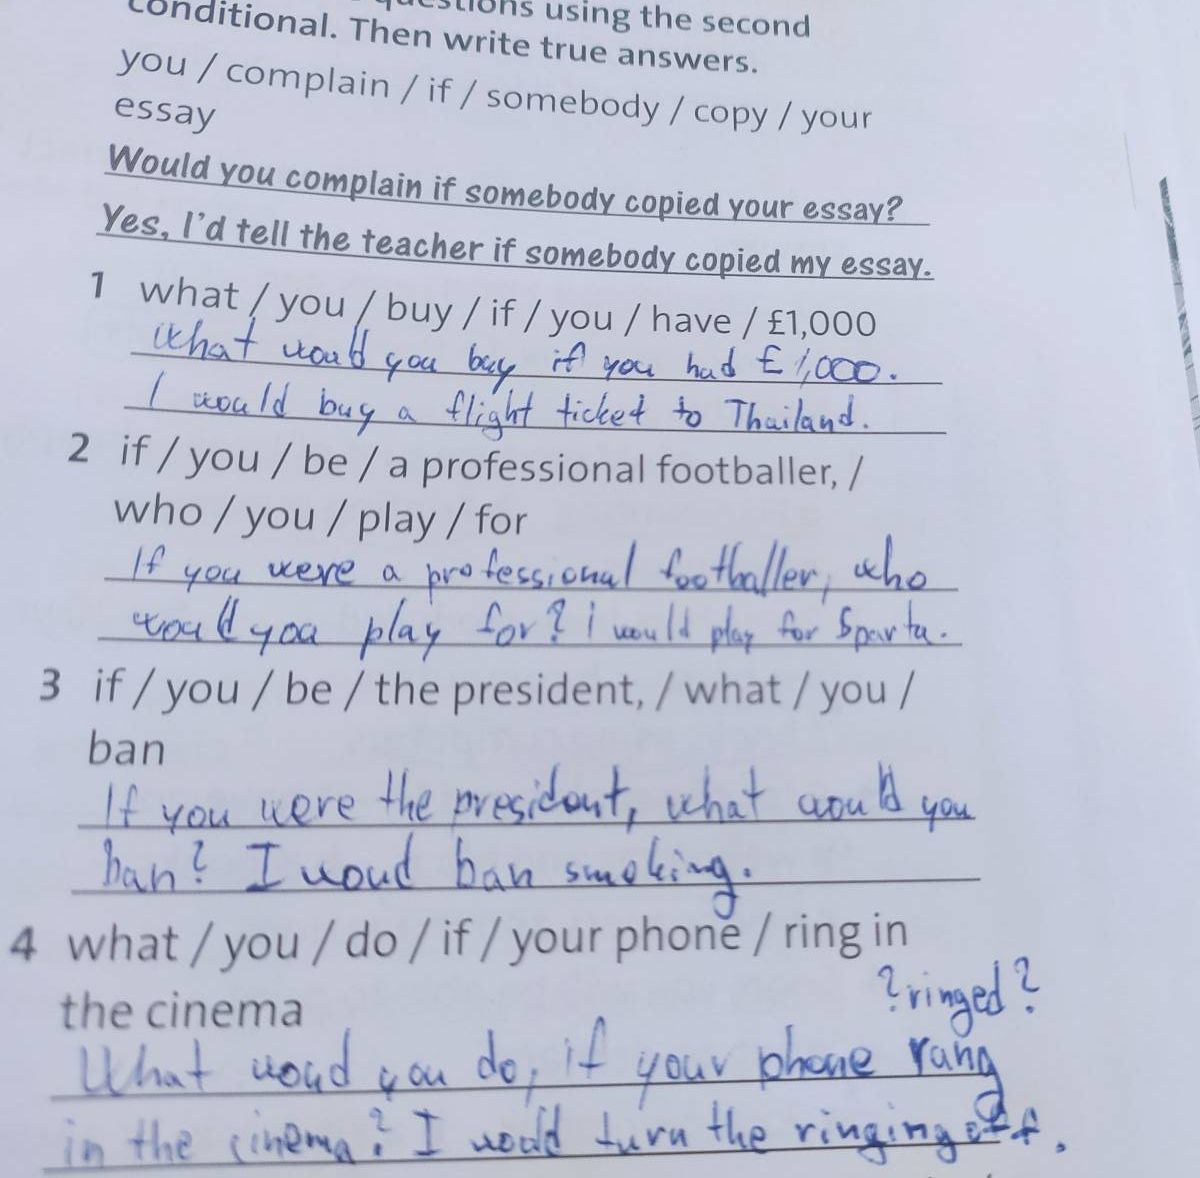 questions using the second
conditional. Then write true answers.
you / complain / if / somebody / copy / your
essay
Would you complain if somebody copied your essay?
Yes, I'd tell the teacher if somebody copied my essay.
1 what / you / buy / if / you / have / £1,000
What would you buy if you had £1,000.
I would buy a flight ticket to Thailand.
2 if / you / be / a professional footballer, /
who / you / play / for
If you were a professional footballer, who
would you play for? I would play for Sparta.
3 if / you / be / the president, / what / you /
ban
If you were the president, what would you
ban? I woud ban smoking.
4 what / you / do / if / your phone / ring in
the cinema
?ringed?
What woud you do, if your phone rang
in the cinema? I would turn the ringing off.